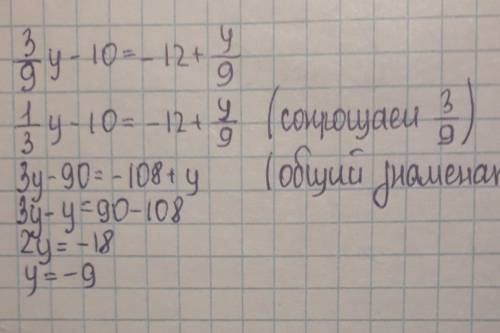 3/9 y - 10 = -12 + y/9
1/3 y - 10 = -12 + y/9 (сокрощаем 3/9)
3y - 90 = -108 + y (общий знаменат
3y - y = 90 - 108
2y = -18
y = -9